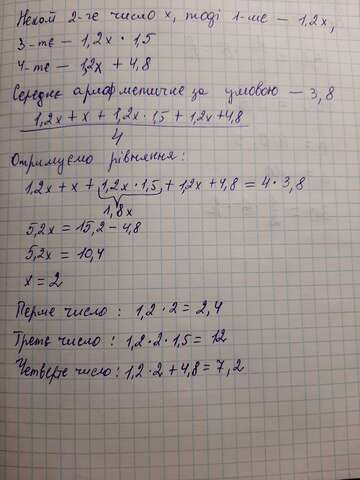 Нехай 2-ге число x, тоді 1-ше — 1,2x,
3-тє — 1,2x · 1,5
4-те — 1,2x + 4,8
Середнє арифметичне за умовою — 3,8
1,2x + x + 1,2x · 1,5 + 1,2x + 4,8
4
Отримуємо рівняння:
1,2x + x + 1,2x · 1,5 + 1,2x + 4,8 = 4 · 3,8
1,8x
5,2x = 15,2 - 4,8
5,2x = 10,4
x = 2
Перше число: 1,2 · 2 = 2,4
Третє число: 1,2 · 2 · 1,5 = 12
Четверте число: 1,2 · 2 + 4,8 = 7,2